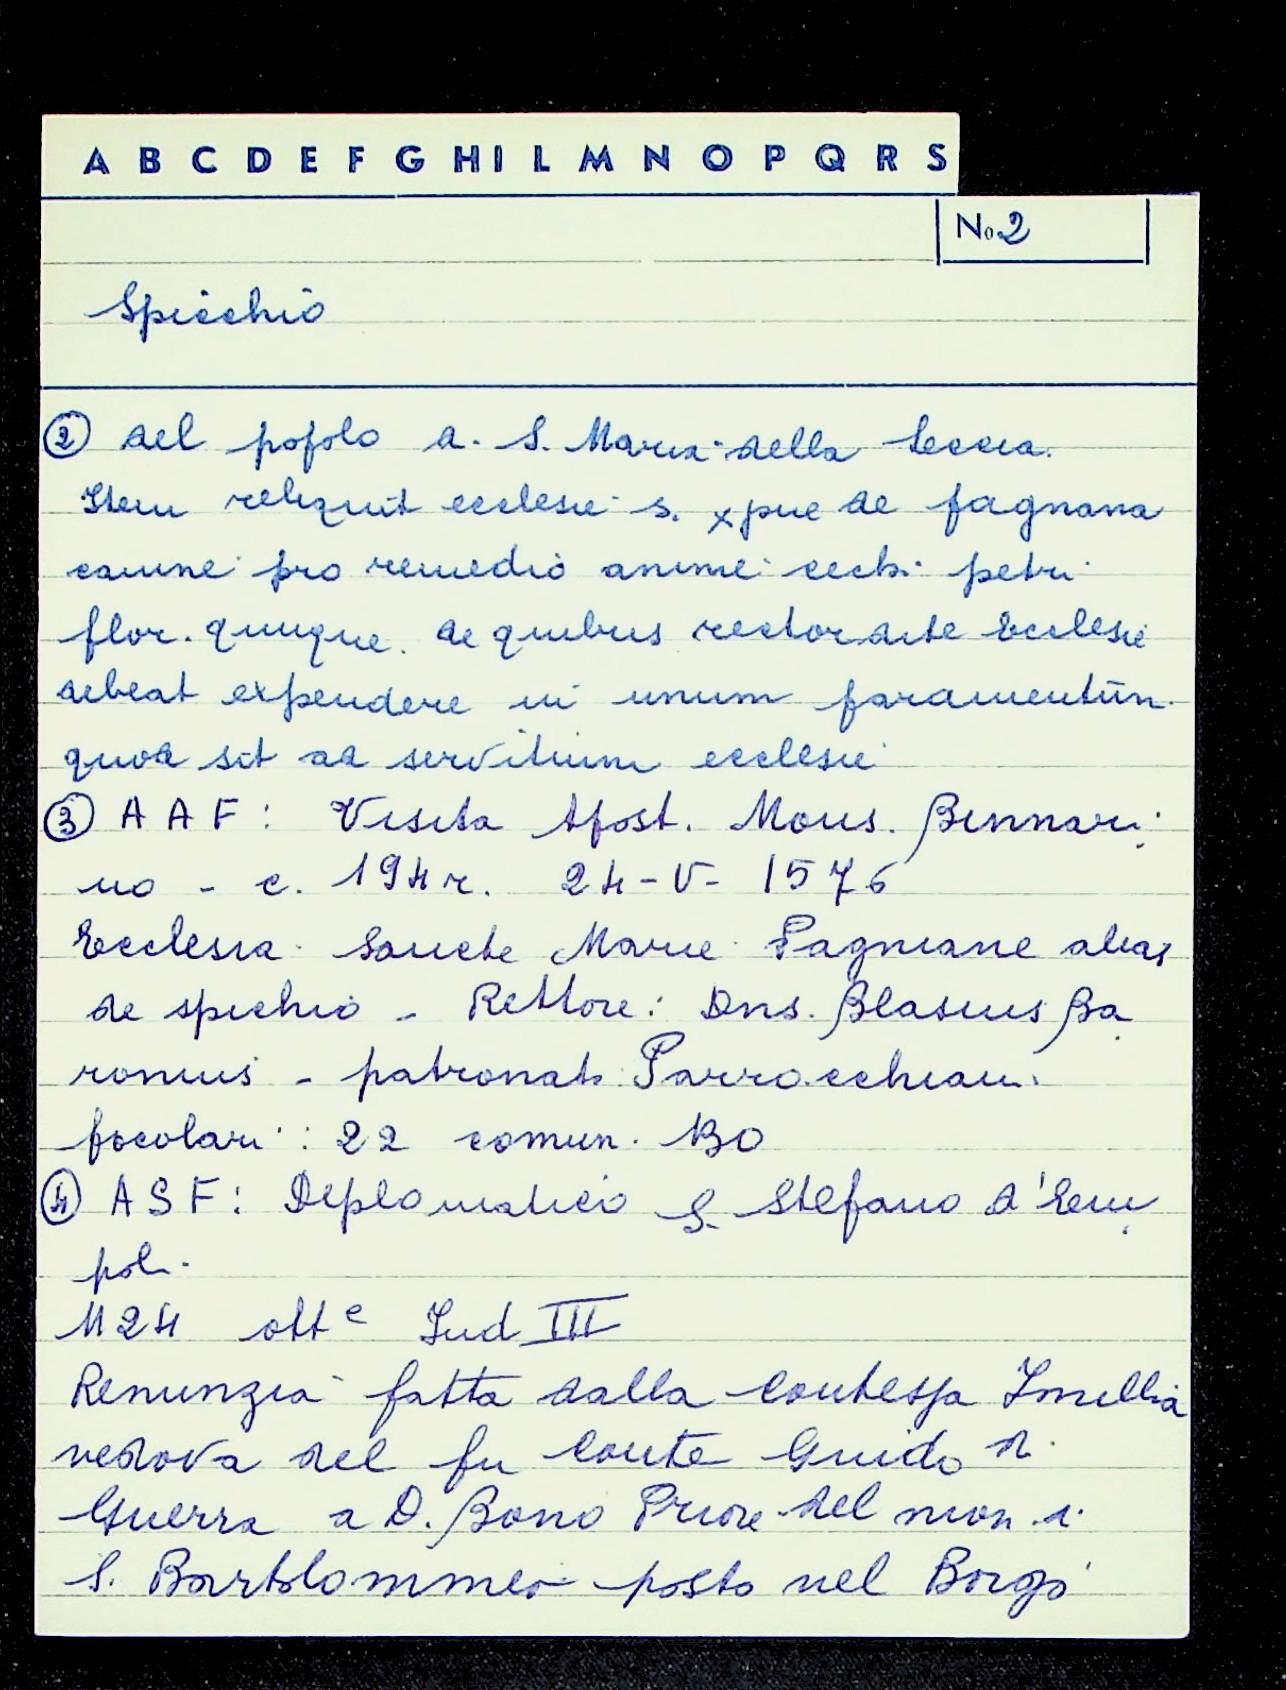 A B C D E F G H I L M N O P Q R S
No. 2
Spicchio
② del popolo d. S. Maria della Leccia.
Item reliquit ecclesie s. xpue de fagnana
comune pro remedio anime cechi petri
flor. quinque. de quibus rector dite Ecclesie
debeat expendere in unum paramentūm
quod sit ad servitium ecclesie
③ AAF: Visita Apost. Mons. Binnari
no - c. 194r. 24-V-1576
Ecclesia Sancte Marie Pagniane alias
de spichio - Rettore: Dns. Blasius Ba
ronius - patronato Parrocchiani
focolari: 22 comun. 130
④ ASF: Diplomatico S. Stefano d'Em
poli
1124 ott^e Ind III
Renunzia fatta dalla Contessa Imillia
vedova del fu Conte Guido di
Guerra a D. Bono Priore del mon. di
S. Bartolommeo posto nel Borgo